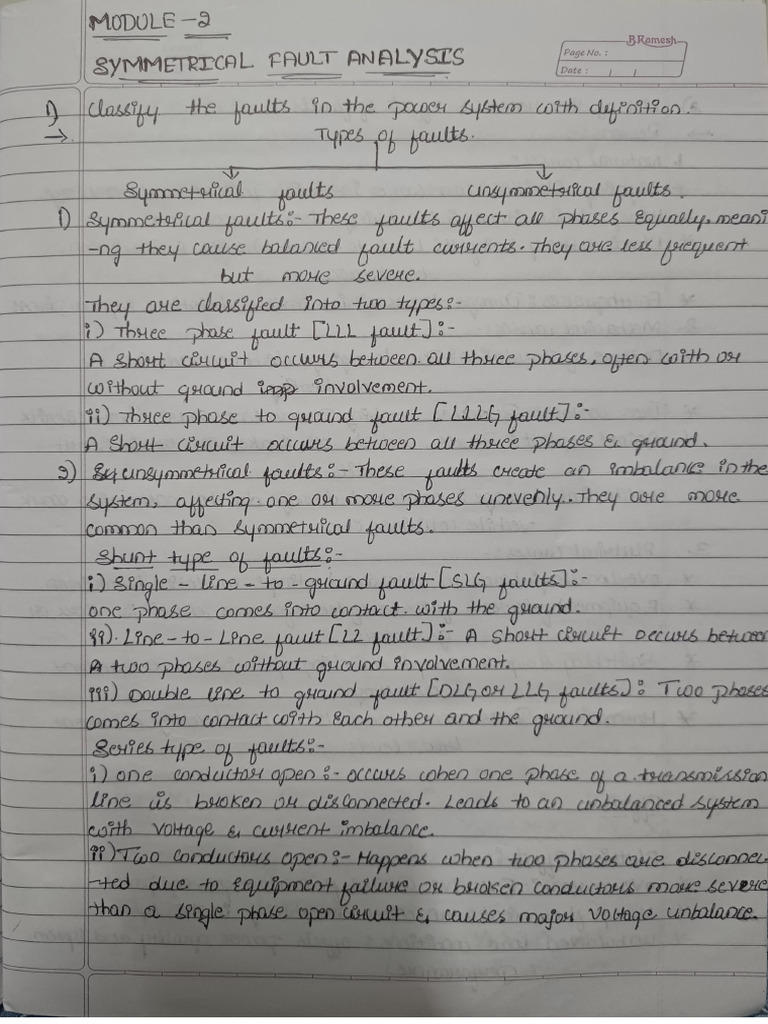 MODULE - 2
B.Ramesh
SYMMETRICAL FAULT ANALYSIS
Page No. :
Date :
1) Classify the faults in the power system with definition.
→ Types of faults.
Symmetrical faults unsymmetrical faults.
1) Symmetrical faults:- These faults affect all phases Equally, meani
-ng they cause balanced fault currents. They are less frequent
but more severe.
They are classified into two types:-
i) Three phase fault [LLL fault]:-
A Short circuit occurs between all three phases, often with or
without ground involvement.
ii) Three phase to ground fault [LLLG fault]:-
A Short circuit occurs between all three phases & ground.
2) unsymmetrical faults:- These faults create an imbalance in the
system, affecting one or more phases unevenly. They are more
common than symmetrical faults.
Shunt type of faults:-
i) Single - line - to - ground fault [SLG faults]:-
one phase comes into contact with the ground.
ii). Line-to-Line fault [LL fault]:- A short circuit occurs between
A two phases without ground involvement.
iii) Double line to ground fault [DLG or LLG faults]: Two phases
comes into contact with Each other and the ground.
Series type of faults:-
i) one conductor open :- occurs when one phase of a transmission
line is broken or disconnected. Leads to an unbalanced system
with voltage & current imbalance.
ii) Two conductors open:- Happens when two phases are disconnec
-ted due to Equipment failure or broken conductors more severe
than a single phase open circuit & causes major voltage unbalance.